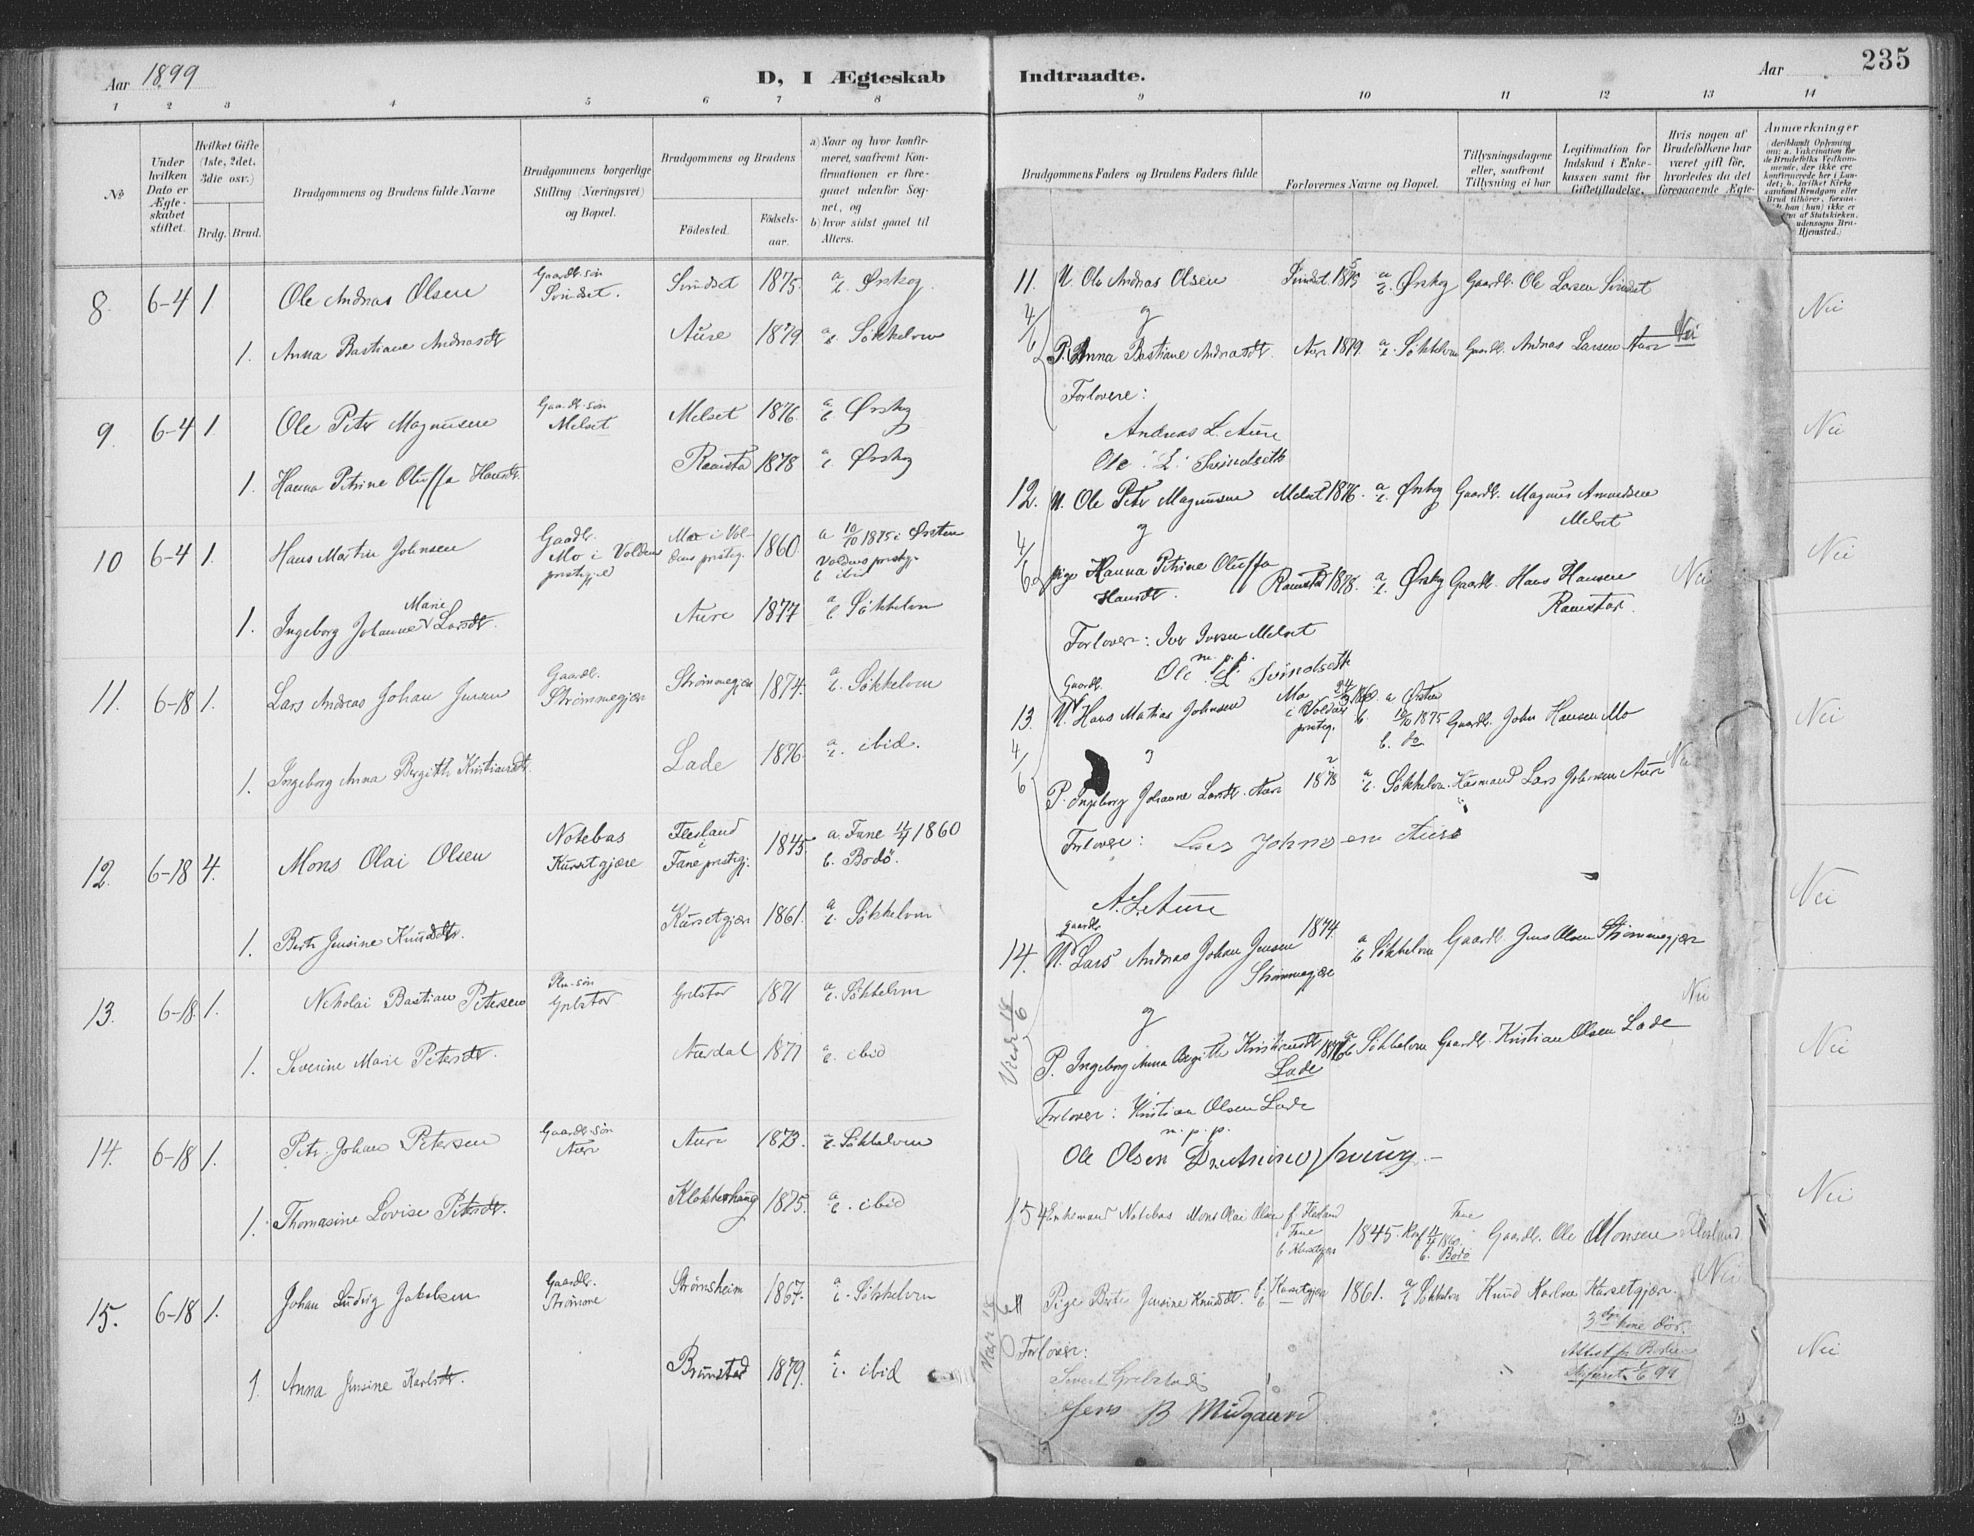 Aar 1899
D, I Ægteskab
Indtraadte.
Aar
235
1 2 3 4 5 6 7 8 9 10 11 12 13 14
No
Under hvilken Dato er Ægteskabet stiftet.
Hvilket Gifte (1ste, 2det, 3die osv.)
Brdg. Brud.
Brudgommens og Brudens fulde Navne
Brudgommens borgerlige Stilling (Næringsvei) og Bopæl.
Brudgommens og Brudens
Födested.
Födselsaar.
a) Naar og hvor konfirmeret, saafremt Konfirmationen er foregaaet udenfor Sognet, og
b) hvor sidst gaaet til Alters.
Brudgommens Faders og Brudens Faders fulde
Forlovernes Navne og Bopæl.
Tillysningsdagene eller, saafremt Tillysning ei har
Legitimation for Indskud i Enkekassen samt for Giftetilladelse,
Hvis nogen af Brudefolkene har været gift för, hvorledes da det foregaaende Ægte-
Anmærkninger
8. 6-4 1. Ole Andreas Olsen Gaardbr.søn Svindset. Svindset 1875. a b. Ørskog.
1. Anna Bastiane Andreasdt Aure 1879 a b. Søkkelven
9. 6-4 1. Ole Peter Magnusen Gaardbr.søn Melset Melset 1876. a b. Ørskog
1. Hanna Petrine Oluffa Hansdt. Ramstad 1878 a b. Ørskog
10 6-4 1. Hans Martin Johnsen Gaadbr. Mo i Voldens prestegjeld Mo i Voldens prestegj. 1860. a 10/10 1875 i Ørsten Voldens prestegj. b ibid
1. Ingeborg Johanne Marie Larsdt. Aure 1877 a b. Søkkelven
11. 6-18 1. Lars Andreas Johan Jensen Gaardbr. Strømmegjær Strømmegjær 1874. a b. Søkkelven
1. Ingeborg Anna Bergithe Kristiansdt Lade 1876. a b. ibid.
12. 6-18 4. Mons Olai Olsen Notebas Kursetgjære Flesland i Fane prestegj. 1845. a. Fane 11/4 1860 b. Bodø.
1. Berte Jensine Knudsdt. Kursetgjær 1861. a b. Søkkelven
13. 6-18. 1. Nikolai Bastian Petersen Pln.søn Grebstar Grebstar 1871 a b. Søkkelven
1. Severine Marie Petersdt. Aurdal 1877 a b. ibid
14. 6-18 1. Peter Johan Petersen Gaardbr.søn Aure Aure 1873. a b. Søkkelven
1. Thomasine Lovise Petersdt. Klokkerhaug 1875. a b. ibid
15. 6-18 1. Johan Ludvig Jakobsen Gaardbr. Strømme Strømsheim 1867. a b. Søkkelven
1. Anna Jensine Karlsdt. Brunstad 1879. a b. ibid
11. U. Ole Andreas Olsen Svindset 1875 a b. Ørskog Gaardbr. Ole Larsen Svindset
4/6 og
P. Anna Bastiane Andreasdt. Aure 1879. a b. Søkkelven Gaardbr. Andreas Larsen Aure Nei
Forlovere:
Andreas L. Aure
Ole L. Svindseth
12. U. Ole Peter Magnusen Melset 1876. a b. Ørskog Gaardbr. Magnus Amundsen Melset
4/6 og
pige Hanna Petrine Oluffa Hansdt. Ramstad 1878. a b. Ørskog Gaardbr. Hans Hansen Ramstad. Nei
Forlover: Iver Iversen Melset
m. p. p.
Ole L. Svindseth
13. Gaardbr. U. Hans Matias Johnsen Mo i Voldens prestegj. 1860 a Ørsten 10/10 1875 b. do. Gaardbr. John Hansen Mo
4/6 og
P. Ingeborg Johanne Larsdt. Aure 1878 a b. Søkkelven Husmand Lars Johnsen Aure Nei
Forlovere: Lars Johnsen Aure
A. L. Aure
14. gaardbr. U. Lars Andreas Johan Jensen Strømmegjær 1874. a b Søkkelven Gaardbr. Jens Olsen Strømmegjær
Viede 18/6
og Nei
P. Ingeborg Anna Bergithe Kristiansdt Lade 1876 a b Søkkelven Gaardbr. Kristian Olsen Lade
Forlover: Kristian Olsen Lade
m. p. p.
Ole Olsen
15 4 Enkemand Notebas Mons Olai Olsen f. Flesland i Fane b. Kursetgjær 1845. Konf. 11/4 1860. Fane b. Bodø Gaardbr. Ole Monsen Flesland
Pige Berte Jensine Knudsdt. f. b Kursetgjær 1861. a b Søkkelven Knud Karlsen Kursetgjær. Nei
3die kone død.
Forlovere:
Sivert Grebstad
Jens B Midgaard
Nei
Nei
Nei
Nei
Nei
Nei
Nei
Nei